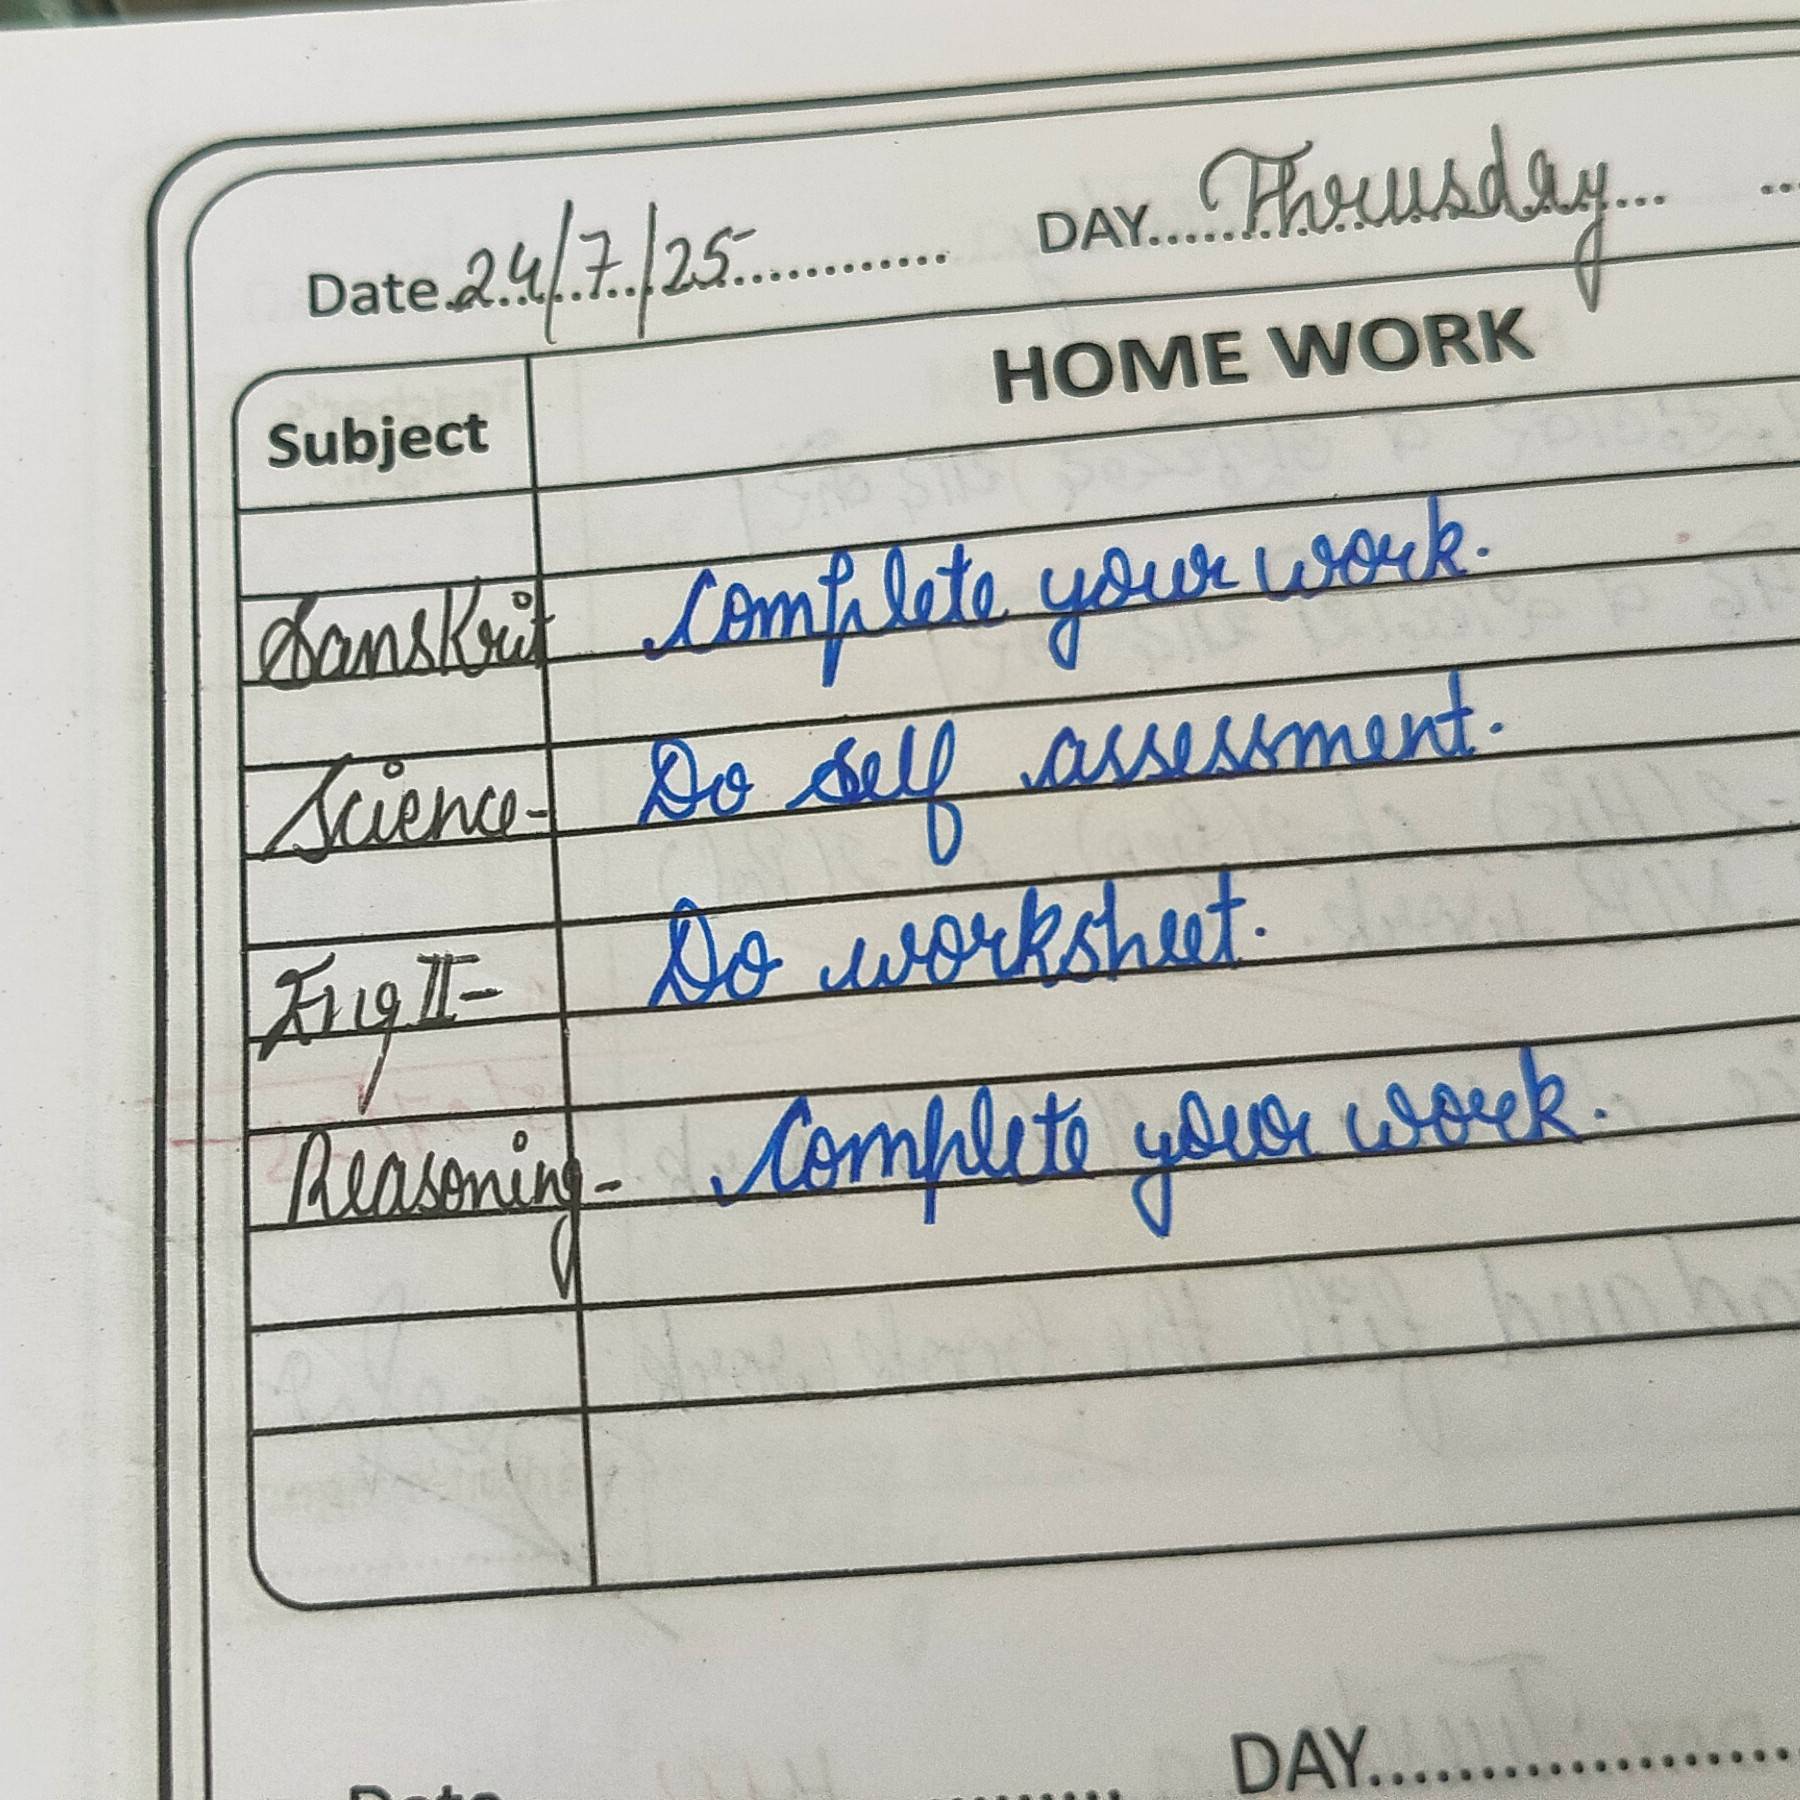 Date.24/7/25............ DAY......Thrusday...
Subject HOME WORK
Sanskrit Complete your work.
Science- Do self assessment.
Eng II- Do worksheet.
Reasoning- Complete your work.
Date DAY